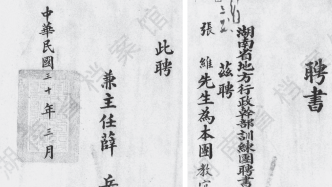 聘書
湖南省地方行政幹部訓練團聘書
茲聘
張維先生為本團教官
此聘
兼主任薛岳
中華民國三十年三月